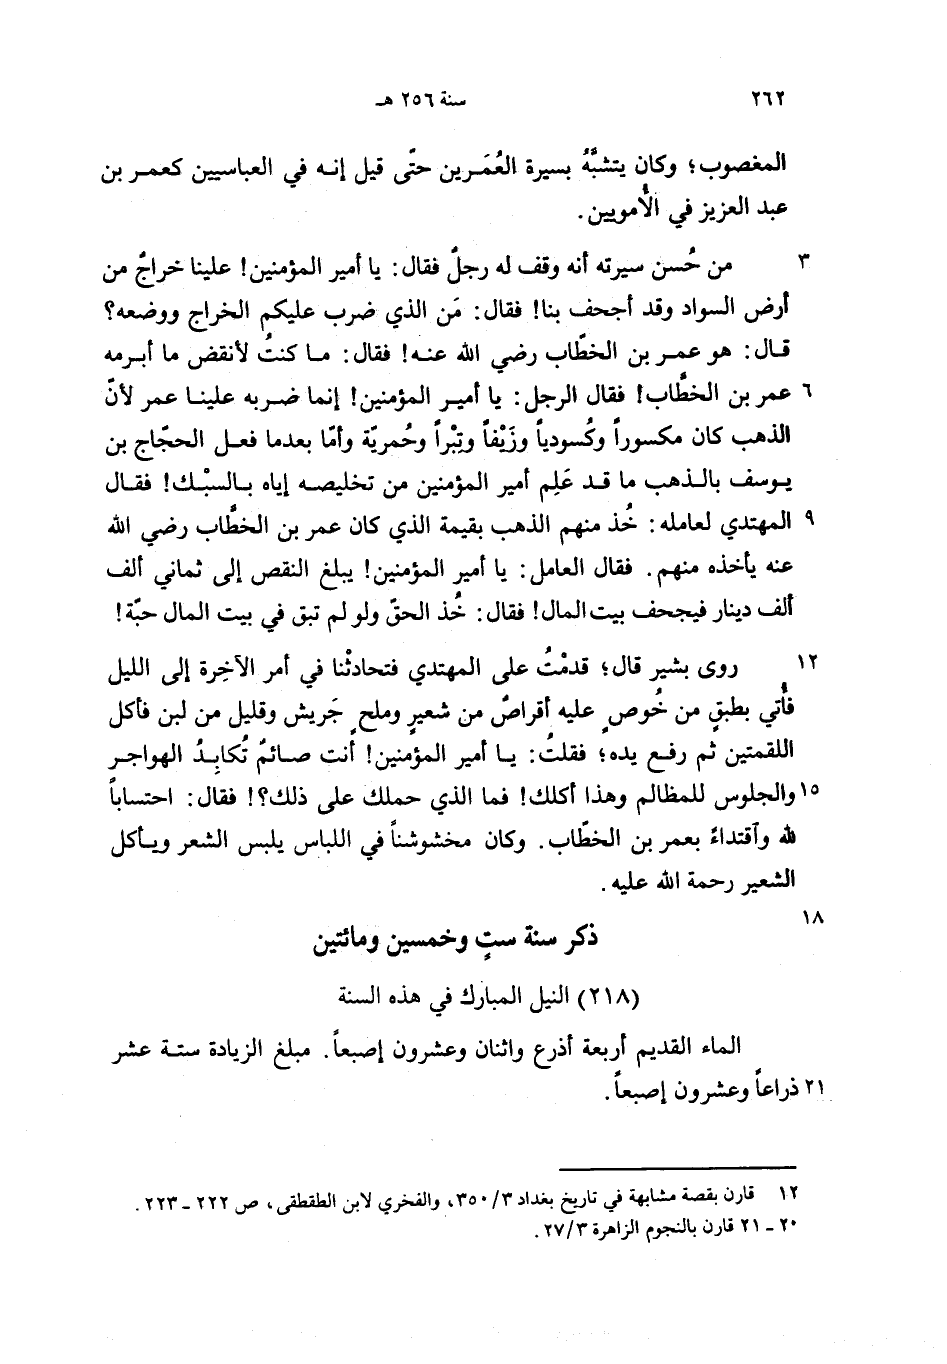 ٢٦٢ سنة ٢٥٦ هـ
المغصوب؛ وكان يتشبَّهُ بسيرة العُمَرين حتّى قيل إنه في العباسيين كعمر بن
عبد العزيز في الأُمويين.
٣ من حُسن سيرته أنه وقف له رجلٌ فقال: يا أمير المؤمنين! علينا خراجٌ من
أرض السواد وقد أجحف بنا! فقال: مَن الذي ضرب عليكم الخراج ووضعه؟
قال: هو عمر بن الخطّاب رضي الله عنه! فقال: ما كنتُ لأنقض ما أبرمه
٦ عمر بن الخطّاب! فقال الرجل: يا أمير المؤمنين! إنما ضربه علينا عمر لأنّ
الذهب كان مكسوراً وكُسودياً وزَيْفاً وتِبْراً وحُمريّة وأمّا بعدما فعل الحجّاج بن
يوسف بالذهب ما قد عَلِم أمير المؤمنين من تخليصه إياه بالسبْك! فقال
٩ المهتدي لعامله: خُذ منهم الذهب بقيمة الذي كان عمر بن الخطّاب رضي الله
عنه يأخذه منهم. فقال العامل: يا أمير المؤمنين! يبلغ النقص إلى ثماني ألف
ألف دينار فيجحف بيت المال! فقال: خُذ الحقّ ولو لم تبق في بيت المال حبّة!
١٢ روى بشير قال؛ قدمْتُ على المهتدي فتحادثْنا في أمر الآخِرة إلى الليل
فأُتي بطبقٍ من خُوصٍ عليه أقراصٌ من شعيرٍ وملحٍ جَريش وقليل من لبن فأكل
اللقمتين ثم رفع يده؛ فقلتُ: يا أمير المؤمنين! أنت صائمٌ تُكابِدُ الهواجر
١٥ والجلوس للمظالم وهذا أكلك! فما الذي حملك على ذلك؟! فقال: احتساباً
لله وآقتداءً بعمر بن الخطّاب. وكان مخشوشناً في اللباس يلبس الشعر ويأكل
الشعير رحمة الله عليه.
١٨ ذكر سنة ستٍ وخمسين ومائتين
(٢١٨) النيل المبارك في هذه السنة
الماء القديم أربعة أذرع واثنان وعشرون إصبعاً. مبلغ الزيادة ستة عشر
٢١ ذراعاً وعشرون إصبعاً.
١٢ قارن بقصة مشابهة في تاريخ بغداد ٣/ ٣٥٠، والفخري لابن الطقطقى، ص ٢٢٢ ـ ٢٢٣.
٢٠ ـ ٢١ قارن بالنجوم الزاهرة ٣/ ٢٧.